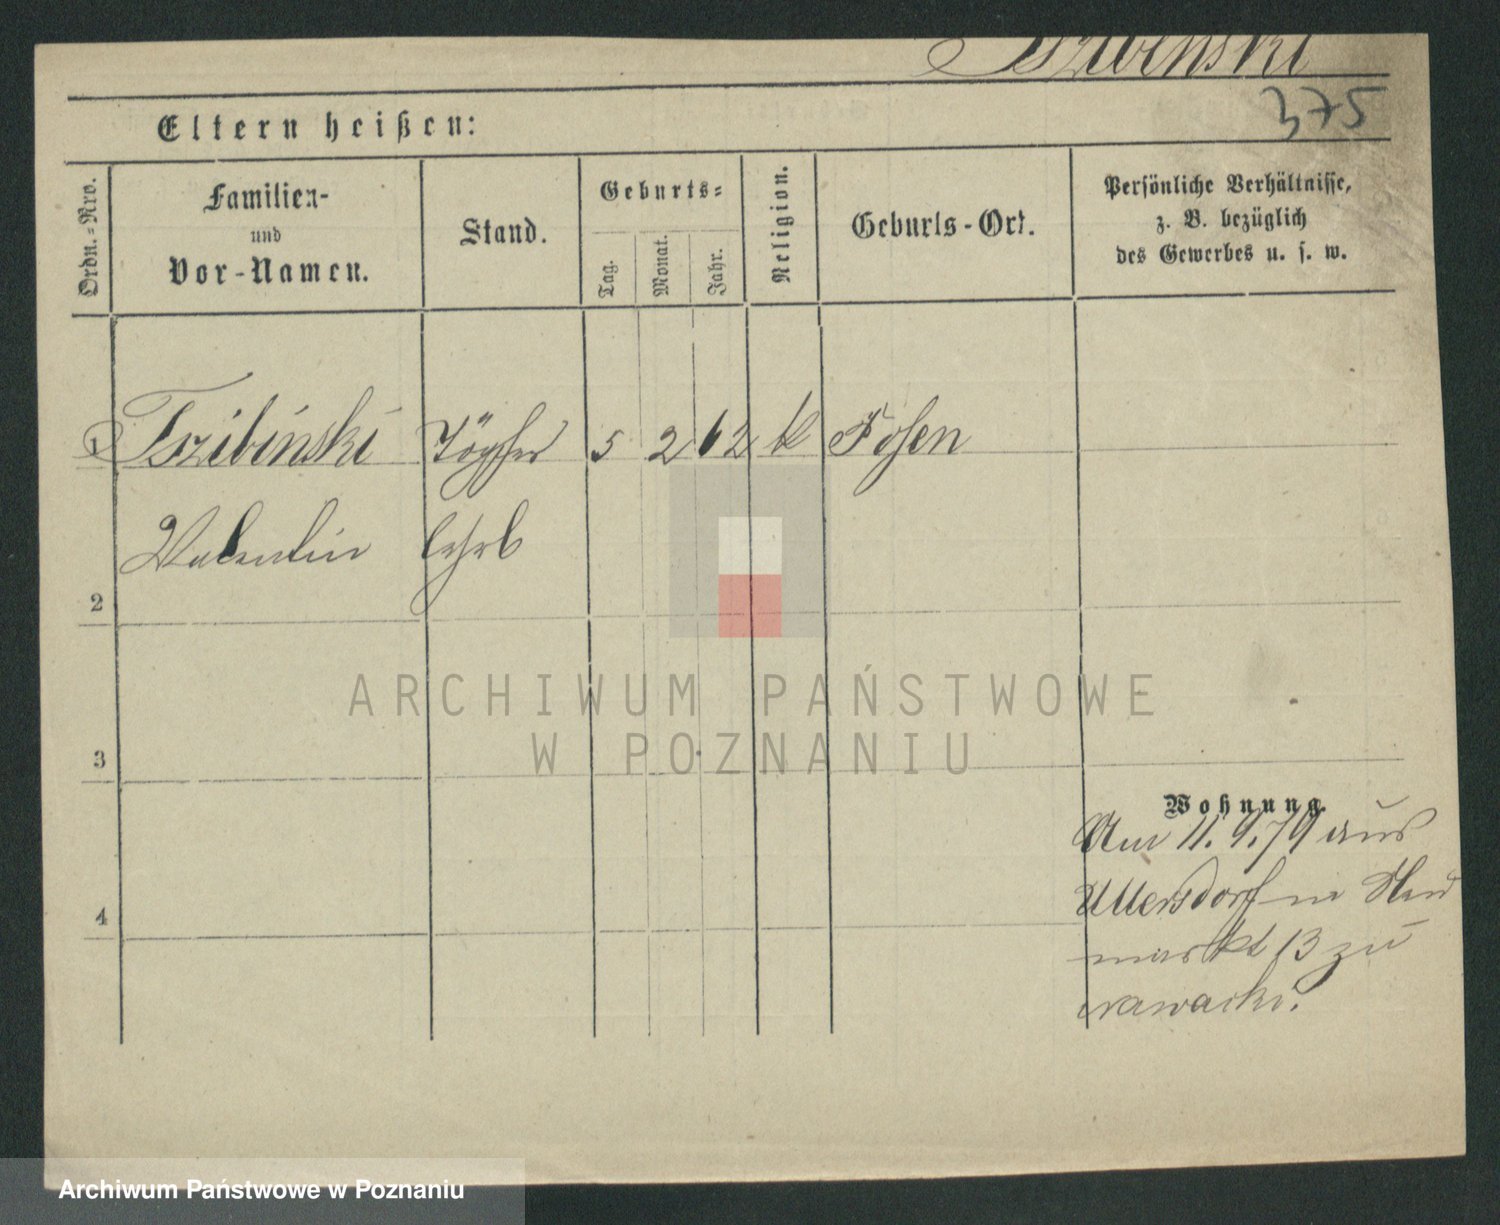 Tszibinski
375
Eltern heißen:
Ordn.-Nro.
Familien-
und
Vor-Namen.
Stand.
Geburts-
Tag.
Monat.
Jahr.
Religion.
Geburts-Ort.
Persönliche Verhältnisse,
z. B. bezüglich
des Gewerbes u. s. w.
1 Tszibinski Töpfer 5 2 62 k Posen
Valentin lehrl
2
3
4
Wohnung.
Am 11.9.79 aus
Ullersdorf n Neu
markt 13 zu
nawacki.
ARCHIWUM PAŃSTWOWE
W POZNANIU
Archiwum Państwowe w Poznaniu